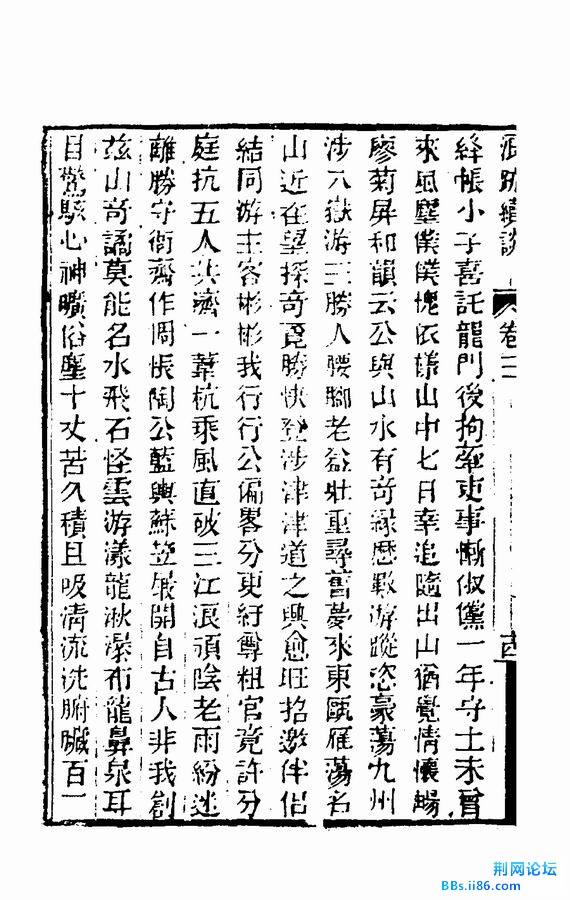 浪跡續談 卷二 十四
絳帳小子喜託龍門後拘牽吏事慚俶儻一年守土未曾
來風塵僕僕愧依樣山中七日幸追隨出山猶覺情懷暢
廖菊屏和韻云公與山水有奇緣歷數游蹤恣豪蕩九州
涉八嶽游三勝人腰腳老益壯重尋舊夢來東甌雁蕩名
山近在望探奇覓勝快登涉津津道之興愈旺招邀伴侶
結同游主客彬彬我行行公偏畧分更紆尊粗官竟許分
庭抗五人共濟一葦杭乘風直破三江浪頑陰老雨紛迷
離勝守衙齋作周悵陶公藍輿蘇笠屐開自古人非我創
茲山奇譎莫能名水飛石怪雲游漾龍湫瀑布龍鼻泉耳
目驚駭心神曠俗塵十丈苦久積且吸清流洗腑臟百一
荆网论坛
BBs.ii86.com